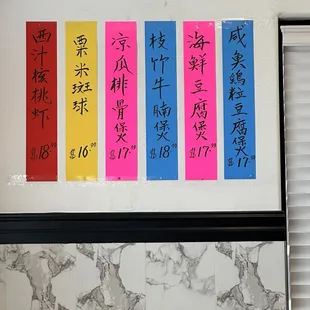 咸魚鷄粒豆腐煲 17.99
海鮮豆腐煲 17.99
枝竹牛腩煲 18.99
凉瓜排骨煲 17.99
粟米斑球 16.99
西汁核桃虾 18.99